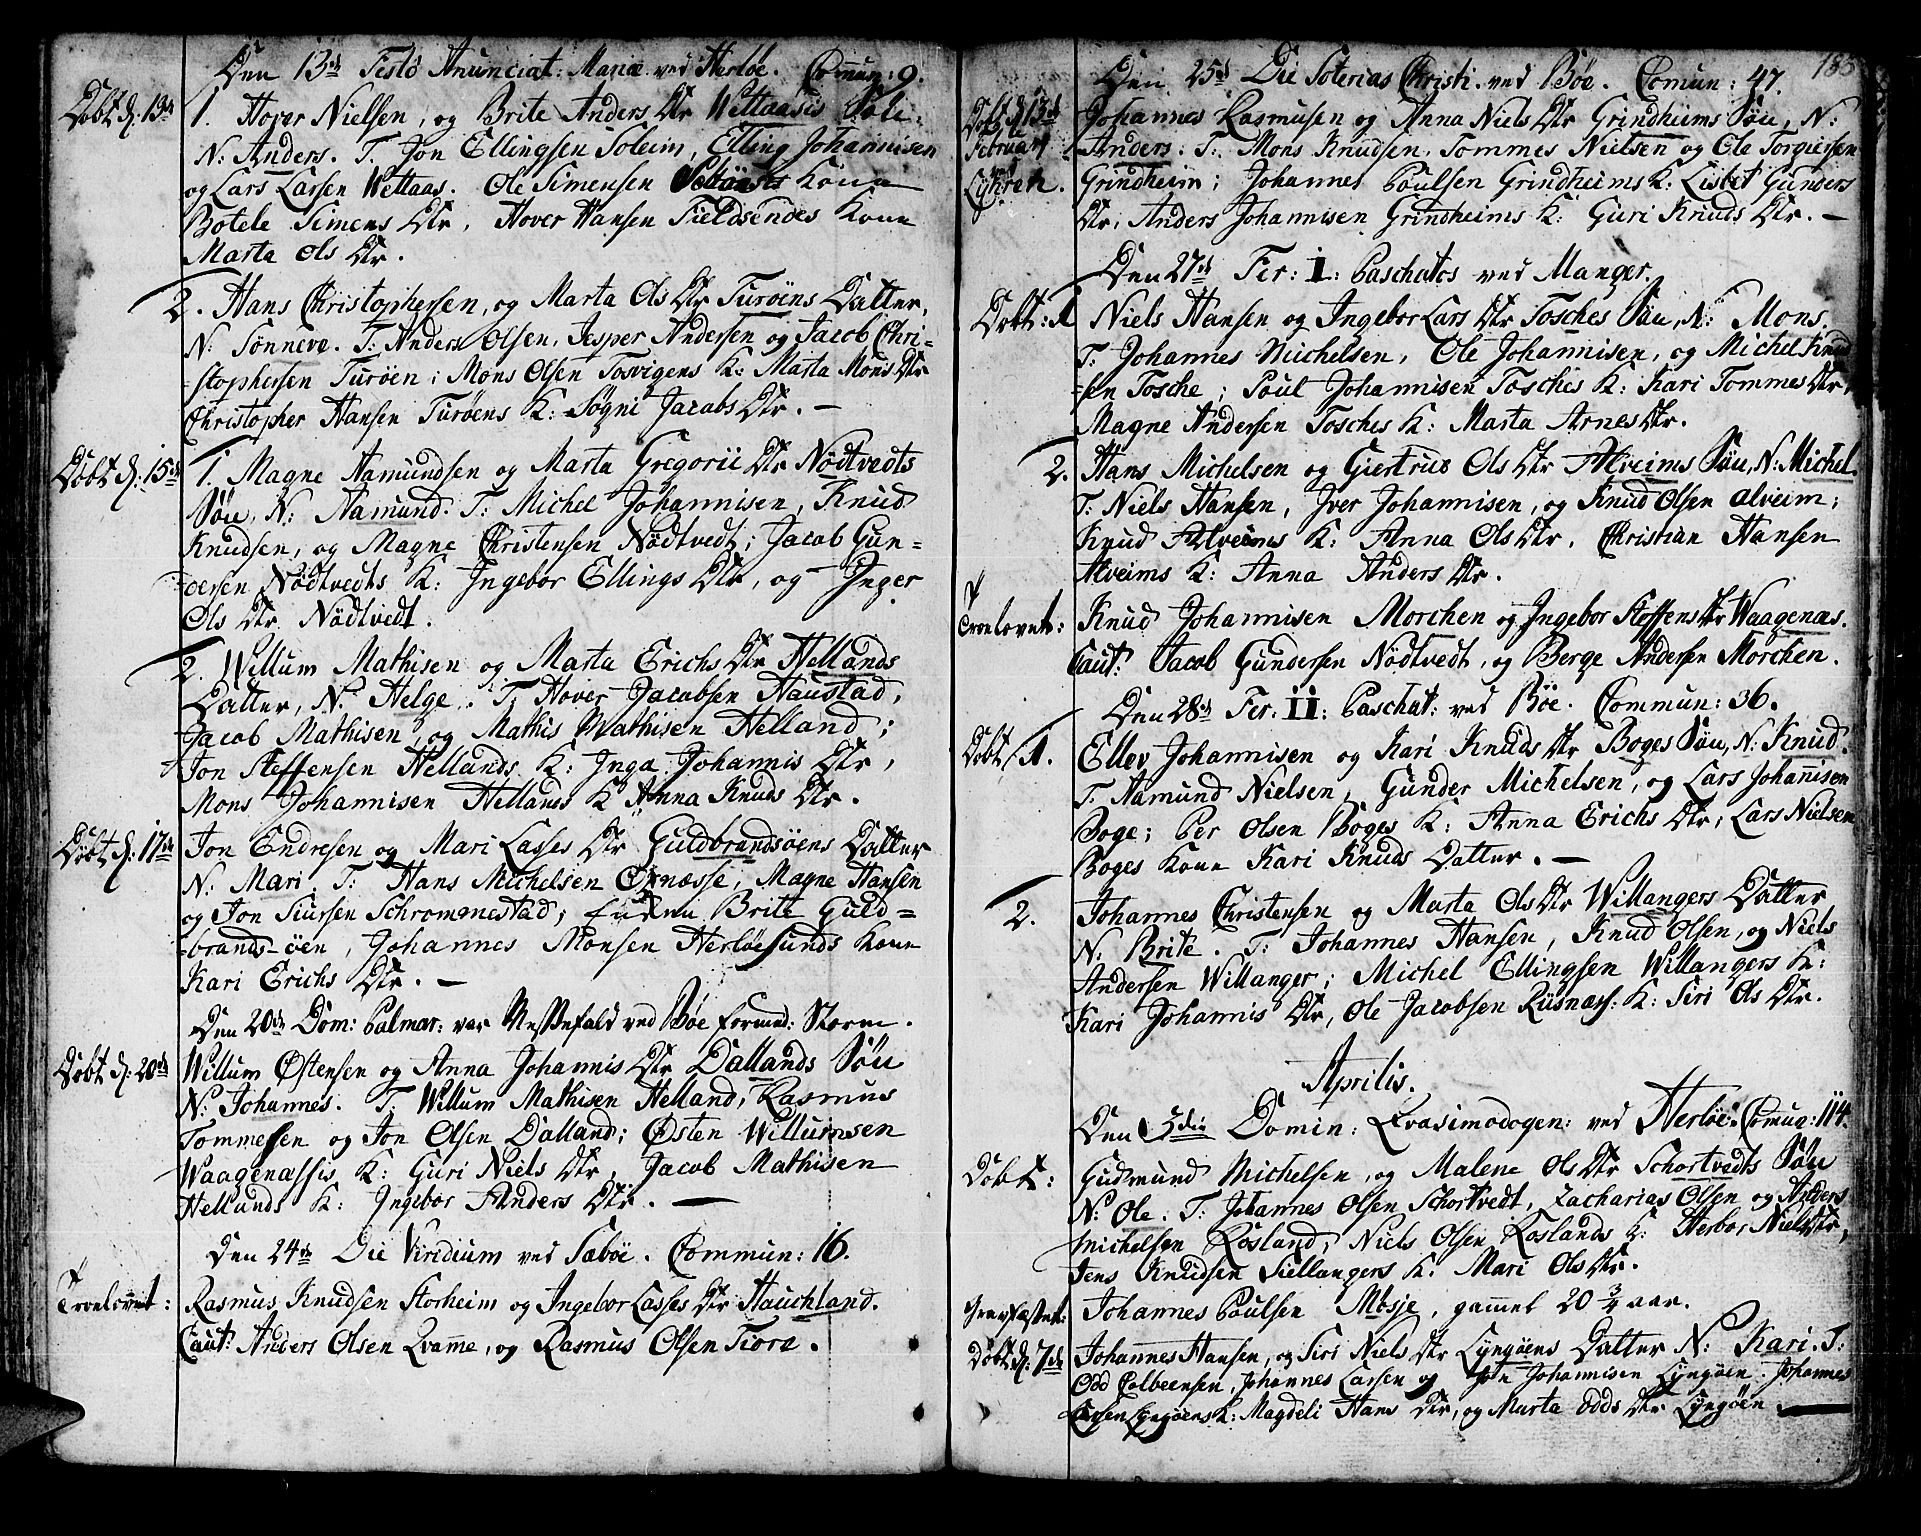 Den 13de Festo Anunciat: Mariæ ved Herløe. Comun: 9.
Døbt d: 13de
1. Hover Nielsen, og Brite Anders Dtr Wettaasis
N: Anders. T. Jon Ellingsen Soleim, Elling Johannisen
og Lars Larsen Wettaas. Ole Simensen Kone
Botele Simens Dtr, Hover Hansen Fieldsendes Kone
Marta Ols Dtr.
2. Hans Christophersen, og Marta Ols Dtr Turøens Datter,
N: Sønneve. T: Anders Olsen, Jesper Andersen og Jacob Chri-
-stophersen Turøen; Mons Olsen Tosvigens K: Marta Mons Dtr
Christopher Hansen Turøens K: Søgni Jacobs Dtr. —
Døbt d: 15de
1. Magne Aamundsen og Marta Gregorii Dtr Nødtvedts
Søn, N: Aamund. T: Michel Johannisen, Knud
Knudsen, og Magne Christensen Nødtvedt; Jacob Gun-
-dersen Nødtvedts K: Ingebor Ellings Dtr, og Inger
Ols Dtr Nødtvedt.
2. Willum Mathisen og Marta Erichs Dtr Hellands
Datter, N: Helge. T: Hover Jacobsen Haustad,
Jacob Mathisen, og Mathis Mathisen Helland;
Jon Steffensen Hellands K: Inga Johannis Dtr,
Mons Johannisen Hellands K: Anna Knuds Dtr.
Døbt d: 17de
Jon Endresen og Mari Lasses Dtr Guldbrandsøens Datter
N: Mari. T: Hans Michelsen Øxnæsse, Magne Hansen
og Jon Siursen Schrommestad; Enden Brite Guld-
-brands-øen, Johannes Monsen Herløesunds Kone
Kari Erichs Dtr. —
Den 20de Dom: Palmar: var Messefald ved Bøe formed: Storm.
Døbt d: 20de
Willum Østensen og Anna Johannis Dtr Dallands Søn
N: Johannes. T: Willum Mathisen Helland, Rasmus
Tommesen og Jon Olsen Dalland; Østen Willumsen
Waagenæssis K: Guri Niels Dtr, Jacob Mathisen
Hellands K: Ingebor Anders Dtr. —
Den 24de Die Viridium ved Sæbøe. Commun: 16.
Troelovet:
Rasmus Knudsen Storheim og Ingebor Lasses Dtr Hauchland.
Caut: Anders Olsen Qvamme, og Rasmus Olsen Fiore.
185
Den 25de Die Soterias Christi ved Bøe. Comun: 47.
Døbt d 13de
Februar
Lyhren.
Johannes Rasmusen og Anna Niels Dtr Grindheims Søn, N:
Anders. T: Mons Knudsen, Tommes Nielsen og Ole Torgiersen
Grindheim; Johannes Poulsen Grindheims K: Lisbet Gunders
Dtr, Anders Johannisen Grindheims K: Guri Knuds Dtr. —
Den 27de Fer: I: Paschatos ved Manger.
Døbt: 1
Niels Hansen og Ingebor Lars Dtr Tosches Søn, N: Mons.
T. Johannes Michelsen, Ole Johannisen, og Michel Knud
-sen Tosche; Poul Johannisen Tosches K: Kari Tommes Dtr,
Magne Andersen Tosches K: Marta Arnes Dtr.
2. Hans Michelsen og Giertrue Ols Dtr Alveims Søn, N: Michel
T: Niels Hansen, Iver Johannisen, og Knud Olsen Alveim;
Knud Alveims K: Anna Ols Dtr, Christian Hansen
Alveims K: Anna Anders Dtr.
Troelovet:
Knud Johannisen Morchen og Ingebor Steffens Dtr Waagenæs.
Caut: Jacob Gundersen Nødtvedt, og Berge Andersen Morchen.
Den 28de Fer: II: Paschat: ved Bøe. Commun: 36.
Døbt 1.
Ellev Johannisen og Kari Knuds Dtr Boges Søn, N: Knud.
T. Aamund Nielsen, Gunder Michelsen, og Lars Johanisen
Boge; Per Olsen Boges K: Anna Erichs Dtr, Lars Nielsen
Boges Kone Kari Knuds Datter. —
2. Johannes Christensen og Marta Ols Dtr Willangers Datter
N: Brite. T: Johannes Hansen, Knud Olsen, og Niels
Andersen Willanger; Michel Ellingsen Willangers K:
Kari Johannis Dtr, Ole Jacobsen Riisnæss: K: Siri Ols Dtr.
Aprilis.
Den 3die Domin: Qvasimodogen: ved Herløe: Comun: 114.
Døbt:
Gudmund Michelsen, og Malene Ols Dtr Schortvedts Søn
N: Ole. T: Johannes Olsen Schortvedt, Zacharias Olsen og Anders
Michelsen Rosland; Niels Olsen Roslands K: Herbor Niels Dtr,
Jens Knudsen Siellangers K: Mari Ols Dtr.
Gravfæstet:
Johannes Poulsen Mosje, gammel 20 3/4 aar.
Døbt d: 7de
Johannes Hansen, og Siri Niels Dtr Lyngøens Datter N: Kari. T:
Odd Colbeensen, Johannes Larsen og Jon Johannisen Lyngøen. Johannes
Larsen Lyngøens K: Magdeli Hans Dtr, og Marta Odds Dtr Lyngøen —